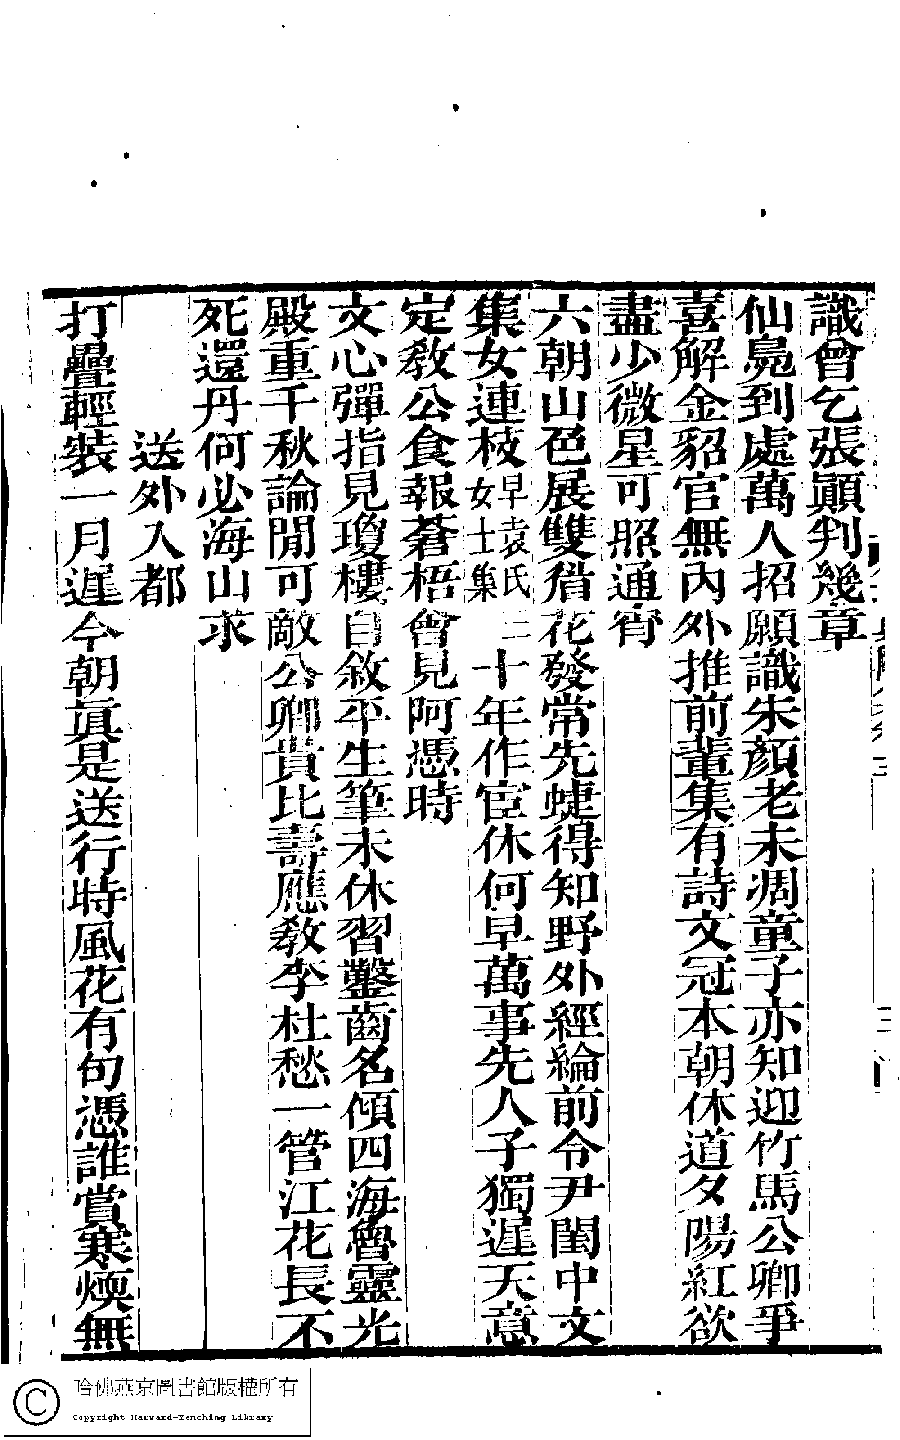 識曾乞張顚判幾章
仙鳧到處萬人招願識朱顏老未凋童子亦知迎竹馬公卿爭
喜解金貂官無內外推前輩集有詩文冠本朝休道夕陽紅欲
盡少微星可照通宵
六朝山色展雙眉花發常先蜨得知野外經綸前令尹閨中文
集女連枝早袁氏二女士集十年作宦休何早萬事先人子獨遲天意
定敎公食報蒼梧曾見阿憑時
文心彈指見瓊樓自敘平生筆未休習鑿齒名傾四海魯靈光
殿重千秋論閒可敵公卿貴比壽應敎李杜愁一管江花長不
死還丹何必海山求
送外入都
打疊輕裝一月遲今朝眞是送行時風花有句憑誰賞寒煥無
哈佛燕京圖書館版權所有
Copyright Harvard-Yenching Library